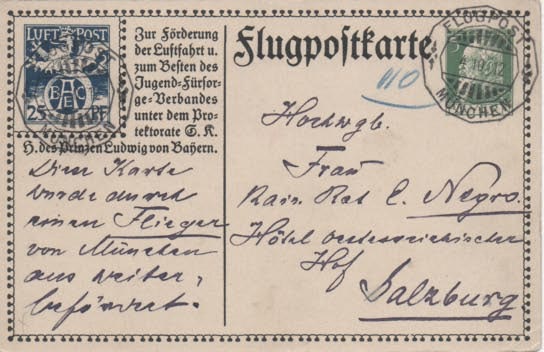 LUFT POST
BAEC
25 PF
Zur Förderung
der Luftfahrt u.
zum Besten des
Jugend-Fürsor-
ge-Verbandes
unter dem Pro-
tektorate S. K.
H. des Prinzen Ludwig von Bayern.
Flugpostkarte
FLUGPOST
MÜNCHEN
5
Diese Karte
wurde durch
einen Flieger
von München
aus weiter-
befördert.
Hochwgb.
Frau
Kais. Rat C. Negro.
Hôtel Oesterreichischer
Hof
Salzburg.